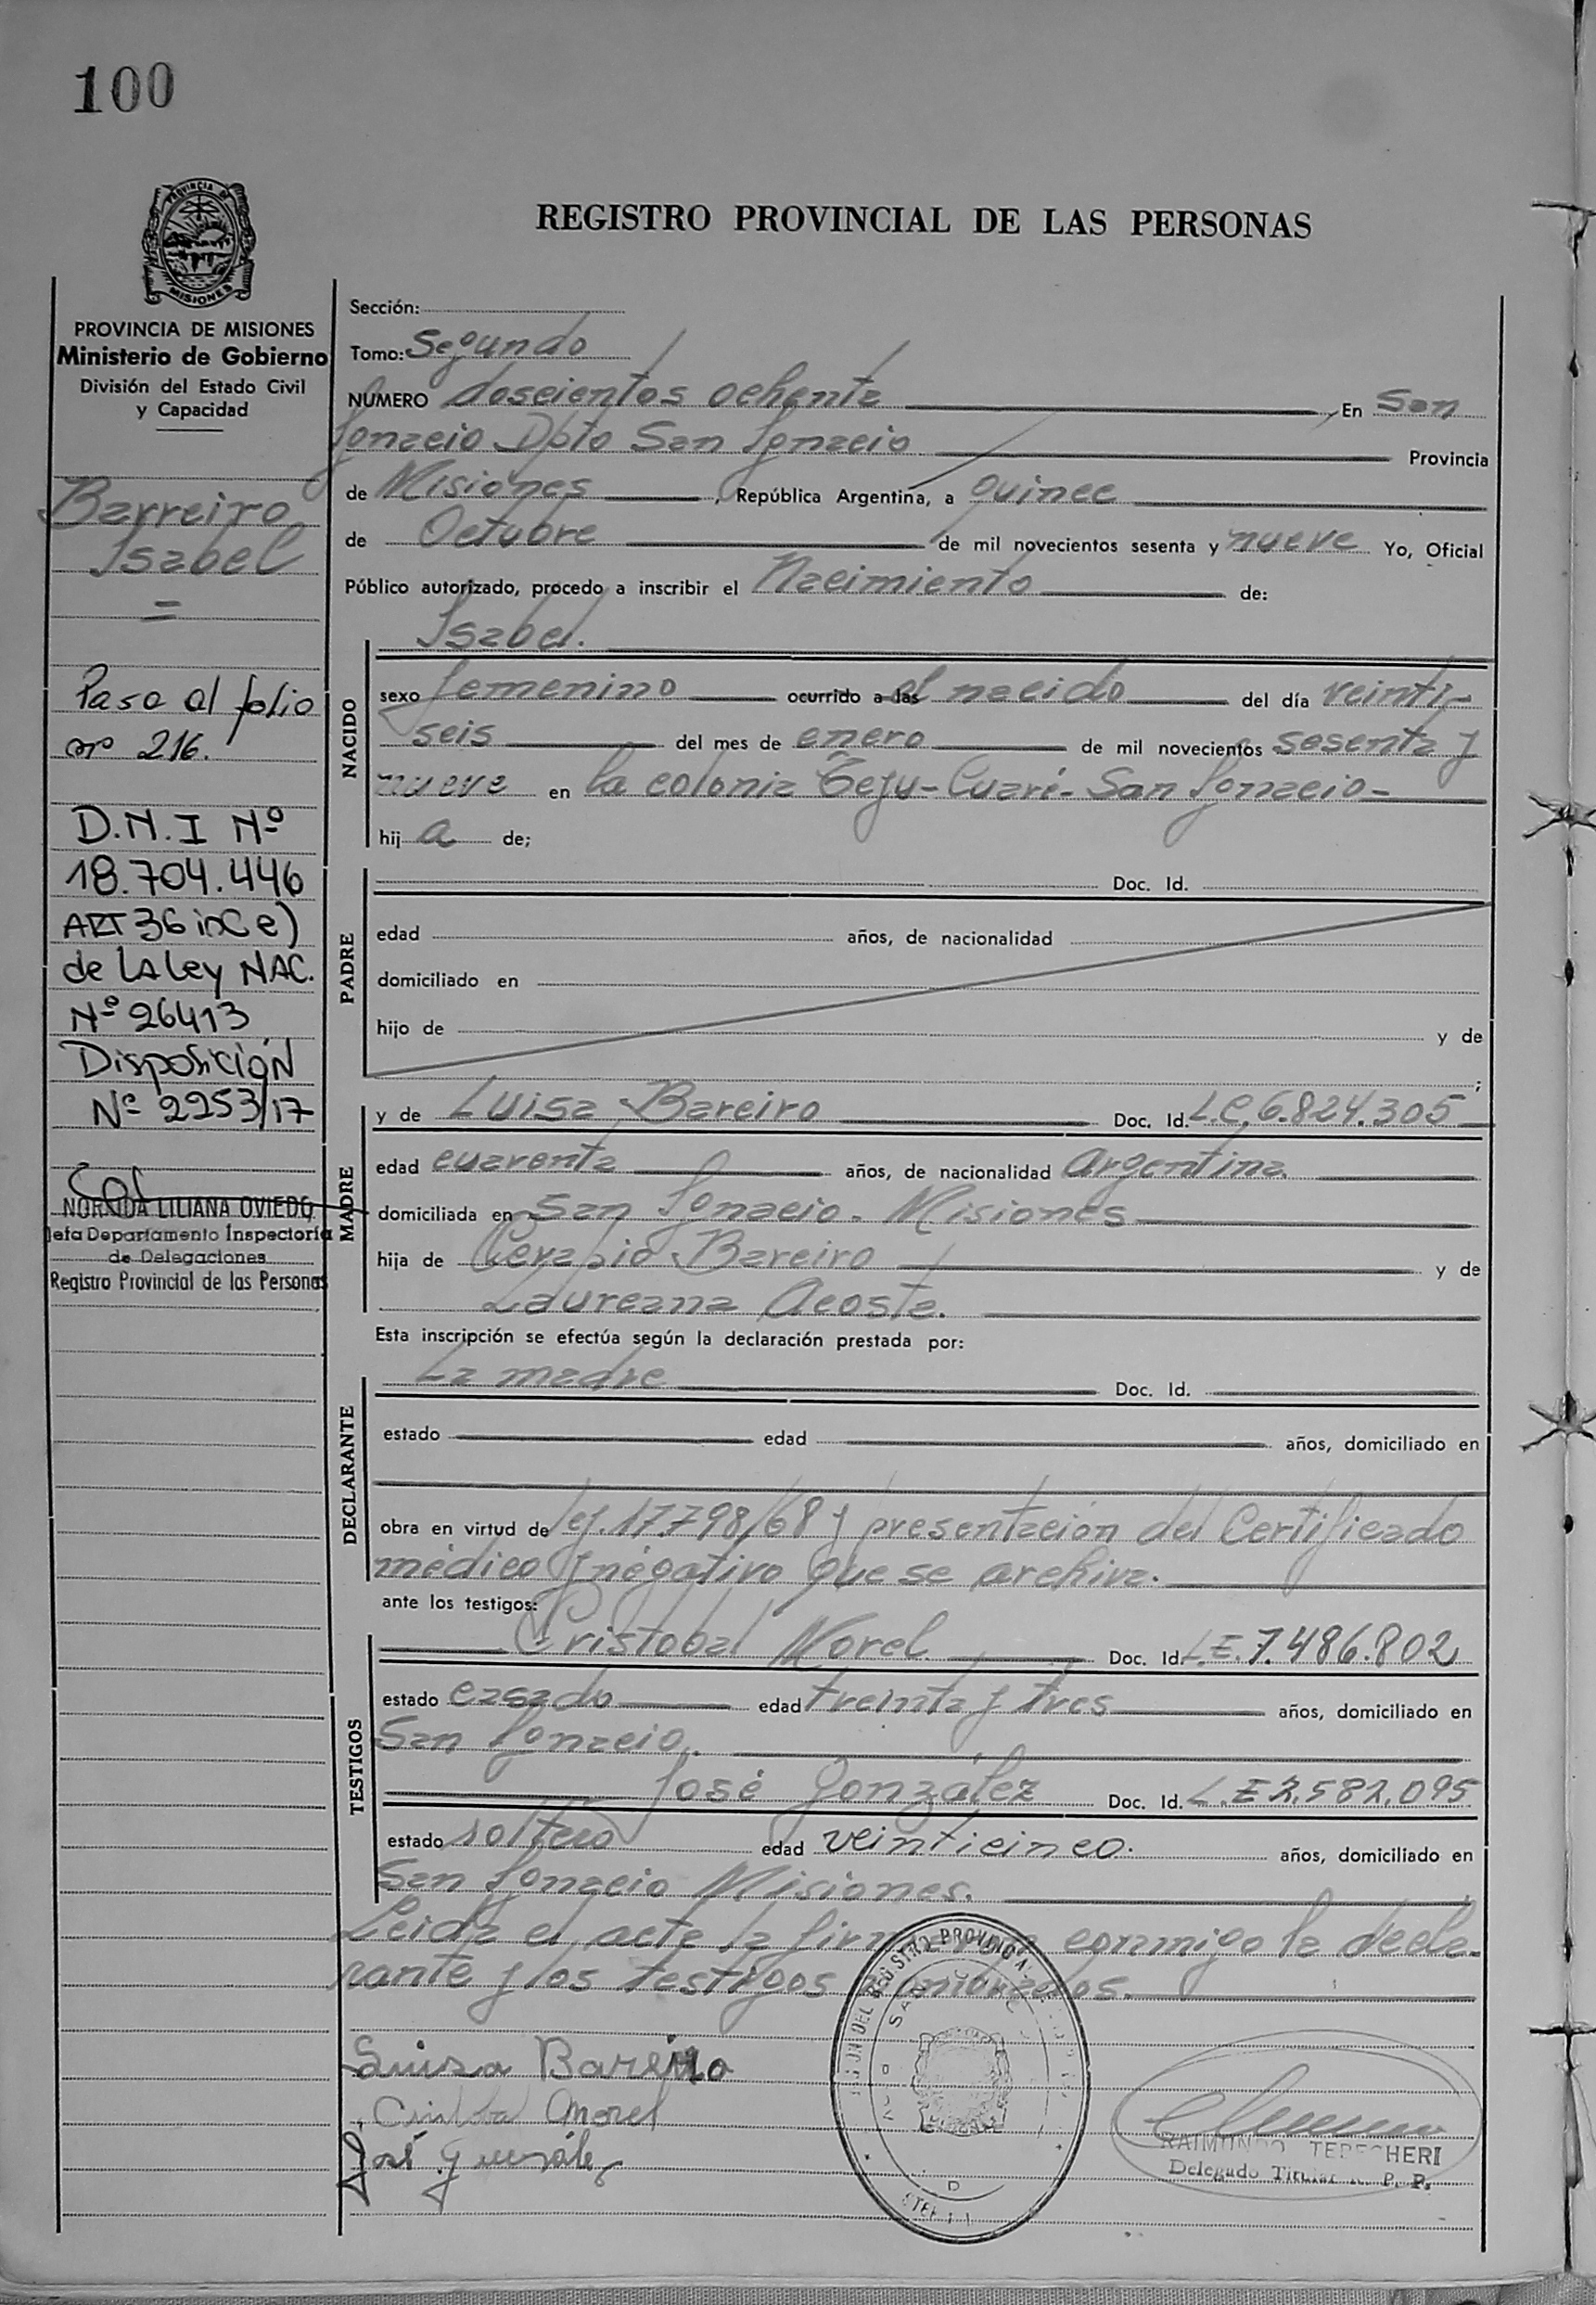 100
PROVINCIA DE
MISIONES
PROVINCIA DE MISIONES
Ministerio de Gobierno
División del Estado Civil
y Capacidad
Barreiro
Isabel
=
Pasa al folio
nº 216.
D.N.I Nº
18.704.446
ART 36 inc e)
de LA Ley NAC.
Nº 26413
Disposición
Nº 2253/17
NORMA LILIANA OVIEDO
Jefa Departamento Inspectoría
de Delegaciones
Registro Provincial de las Personas
REGISTRO PROVINCIAL DE LAS PERSONAS
Sección:
Tomo: Segundo
NÚMERO doscientos ochenta , En San
Ignacio Dpto San Ignacio Provincia
de Misiones , República Argentina, a quince
de Octubre de mil novecientos sesenta y nueve Yo, Oficial
Público autorizado, procedo a inscribir el Nacimiento de:
NACIDO
Isabel.
sexo femenino ocurrido a las el nacido del día veinti-
seis del mes de enero de mil novecientos sesenta y
nueve en la colonia Teju-Cuaré- San Ignacio-
hij a de;
PADRE
Doc. Id.
edad años, de nacionalidad
domiciliado en
hijo de y de
;
MADRE
y de Luisa Bareiro Doc. Id. L.C. 6.824.305
edad cuarenta años, de nacionalidad argentina.
domiciliada en San Ignacio- Misiones
hija de Bareiro y de
Laureana Acosta.
Esta inscripción se efectúa según la declaración prestada por:
DECLARANTE
La madre Doc. Id.
estado edad años, domiciliado en
obra en virtud de ley. 17.798/68 y presentación del Certificado
médico y negativo que se archiva.
ante los testigos:
TESTIGOS
Cristobal Morel Doc. Id. L.E. 7.486.802
estado casado edad treinta y tres años, domiciliado en
San Ignacio.
José González Doc. Id. L.E 2.582.095
estado soltero edad veinticinco. años, domiciliado en
San Ignacio Misiones.
Leida el acta la conmigo la decla-
rante y los testigos
Luisa Bareiro
Cristobal Morel
José González
RAIMUNDO HERI
Delegado Titular R. P. P.